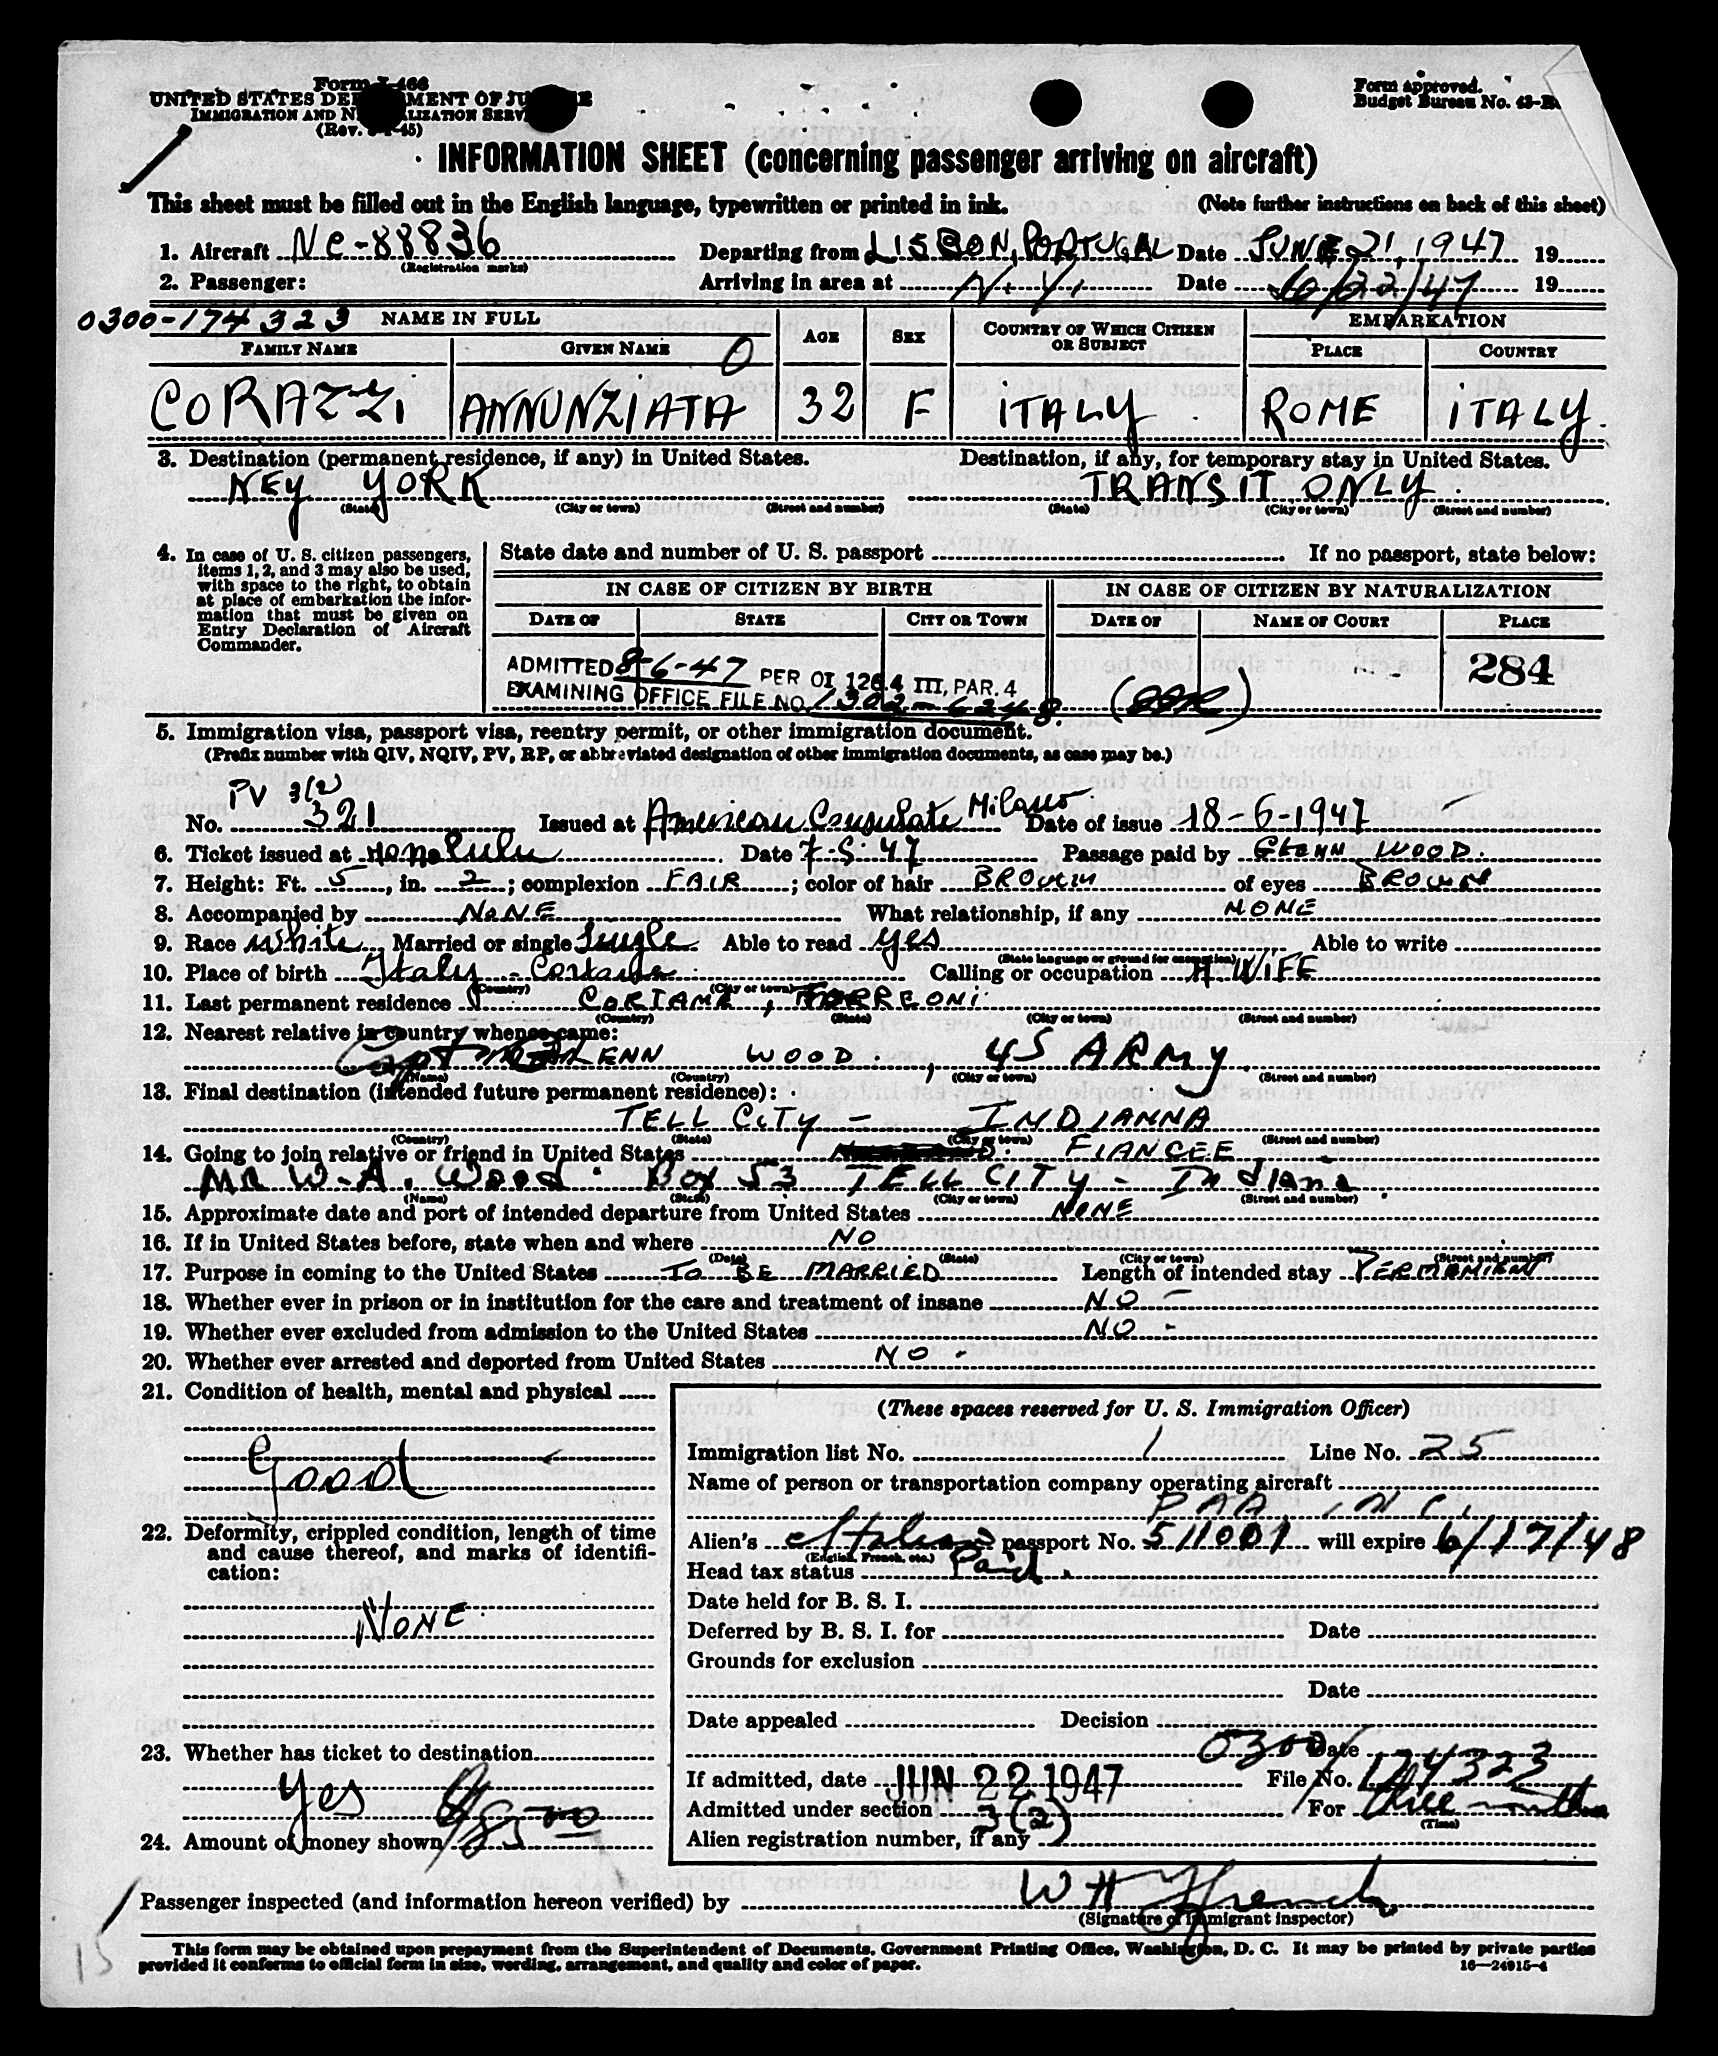 Form I-466
UNITED STATES DEPARTMENT OF JUSTICE
IMMIGRATION AND NATURALIZATION SERVICE
(Rev. -45)
Form approved.
Budget Bureau No. 43-R
INFORMATION SHEET (concerning passenger arriving on aircraft)
This sheet must be filled out in the English language, typewritten or printed in ink. (Note further instructions on back of this sheet)
1. Aircraft NC-88836 Departing from LISBON, PORTUGAL Date JUNE 21, 1947 19
(Registration marks)
2. Passenger: Arriving in area at N.Y. Date 6/22/47 19
0300-174323 NAME IN FULL AGE SEX COUNTRY OF WHICH CITIZEN OR SUBJECT EMBARKATION
FAMILY NAME GIVEN NAME O PLACE COUNTRY
CORAZZI ANNUNZIATA 32 F ITALY ROME ITALY.
3. Destination (permanent residence, if any) in United States. Destination, if any, for temporary stay in United States.
NEY YORK TRANSIT ONLY.
(State) (City or town) (Street and number) (State) (City or town) (Street and number)
4. In case of U. S. citizen passengers, items 1, 2, and 3 may also be used, with space to the right, to obtain at place of embarkation the information that must be given on Entry Declaration of Aircraft Commander.
State date and number of U. S. passport If no passport, state below:
IN CASE OF CITIZEN BY BIRTH IN CASE OF CITIZEN BY NATURALIZATION
DATE OF STATE CITY OR TOWN DATE OF NAME OF COURT PLACE
284
ADMITTED 8-6-47 PER OI 126.4 III, PAR. 4
EXAMINING OFFICE FILE NO. 1302-6248.
5. Immigration visa, passport visa, reentry permit, or other immigration document.
(Prefix number with QIV, NQIV, PV, RP, or abbreviated designation of other immigration documents, as case may be.)
PV 3(2)
No. 321 Issued at American Consulate Milano Date of issue 18-6-1947
6. Ticket issued at Honolulu Date 7-5-47 Passage paid by GLENN WOOD.
7. Height: Ft. 5, in. 2; complexion FAIR; color of hair BROWN of eyes BROWN
8. Accompanied by NONE What relationship, if any NONE
9. Race White Married or single Single Able to read yes Able to write
(State language or ground for exemption)
10. Place of birth Italy - Calling or occupation H. WIFE
(Country) (City or town)
11. Last permanent residence
(Country) (State) (City or town) (Street and number)
12. Nearest relative in country whence came:
Capt GLENN WOOD., US ARMY
(Name) (Country) (City or town) (Street and number)
13. Final destination (intended future permanent residence):
TELL CITY - INDIANNA
(Country) (State) (City or town) (Street and number)
14. Going to join relative or friend in United States FIANCEE
MR W.A. Wood. Box 53 TELL CITY - Indiana.
(Name) (State) (City or town) (Street and number)
15. Approximate date and port of intended departure from United States NONE
16. If in United States before, state when and where NO
(Date) (State) (City or town) (Street and number)
17. Purpose in coming to the United States TO BE MARRIED Length of intended stay PERMANIANT
18. Whether ever in prison or in institution for the care and treatment of insane NO -
19. Whether ever excluded from admission to the United States NO -
20. Whether ever arrested and deported from United States NO -
21. Condition of health, mental and physical
Good
22. Deformity, crippled condition, length of time and cause thereof, and marks of identification:
NONE
23. Whether has ticket to destination
Yes
24. Amount of money shown
(These spaces reserved for U. S. Immigration Officer)
Immigration list No. 1 Line No. 25
Name of person or transportation company operating aircraft
PAA, INC.
Alien's Italian passport No. 511001 will expire 6/17/48
(English, French, etc.)
Head tax status Paid.
Date held for B. S. I.
Deferred by B. S. I. for Date
Grounds for exclusion
Date
Date appealed Decision
Date
If admitted, date JUN 22 1947 File No. 0300/174323
Admitted under section 3(2) For three months
(Time)
Alien registration number, if any
Passenger inspected (and information hereon verified) by W H French
(Signature of immigrant inspector)
This form may be obtained upon prepayment from the Superintendent of Documents, Government Printing Office, Washington, D. C. It may be printed by private parties
provided it conforms to official form in size, wording, arrangement, and quality and color of paper. 16—24915-4
15